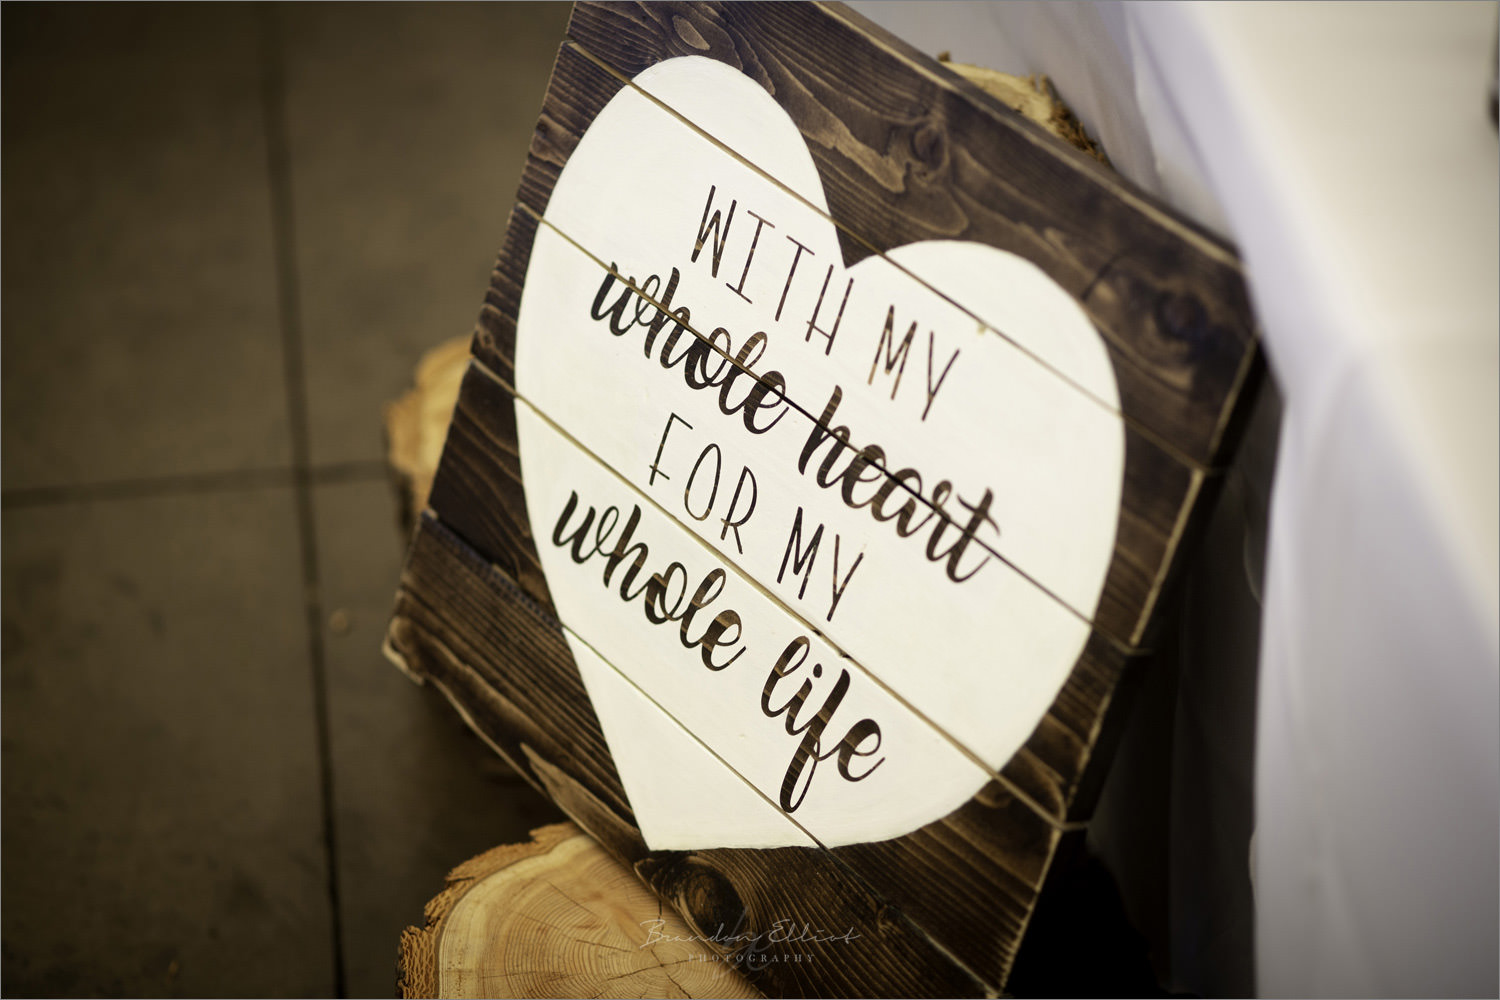 WITH MY
whole heart
FOR MY
whole life
Brandon Elliot
PHOTOGRAPHY